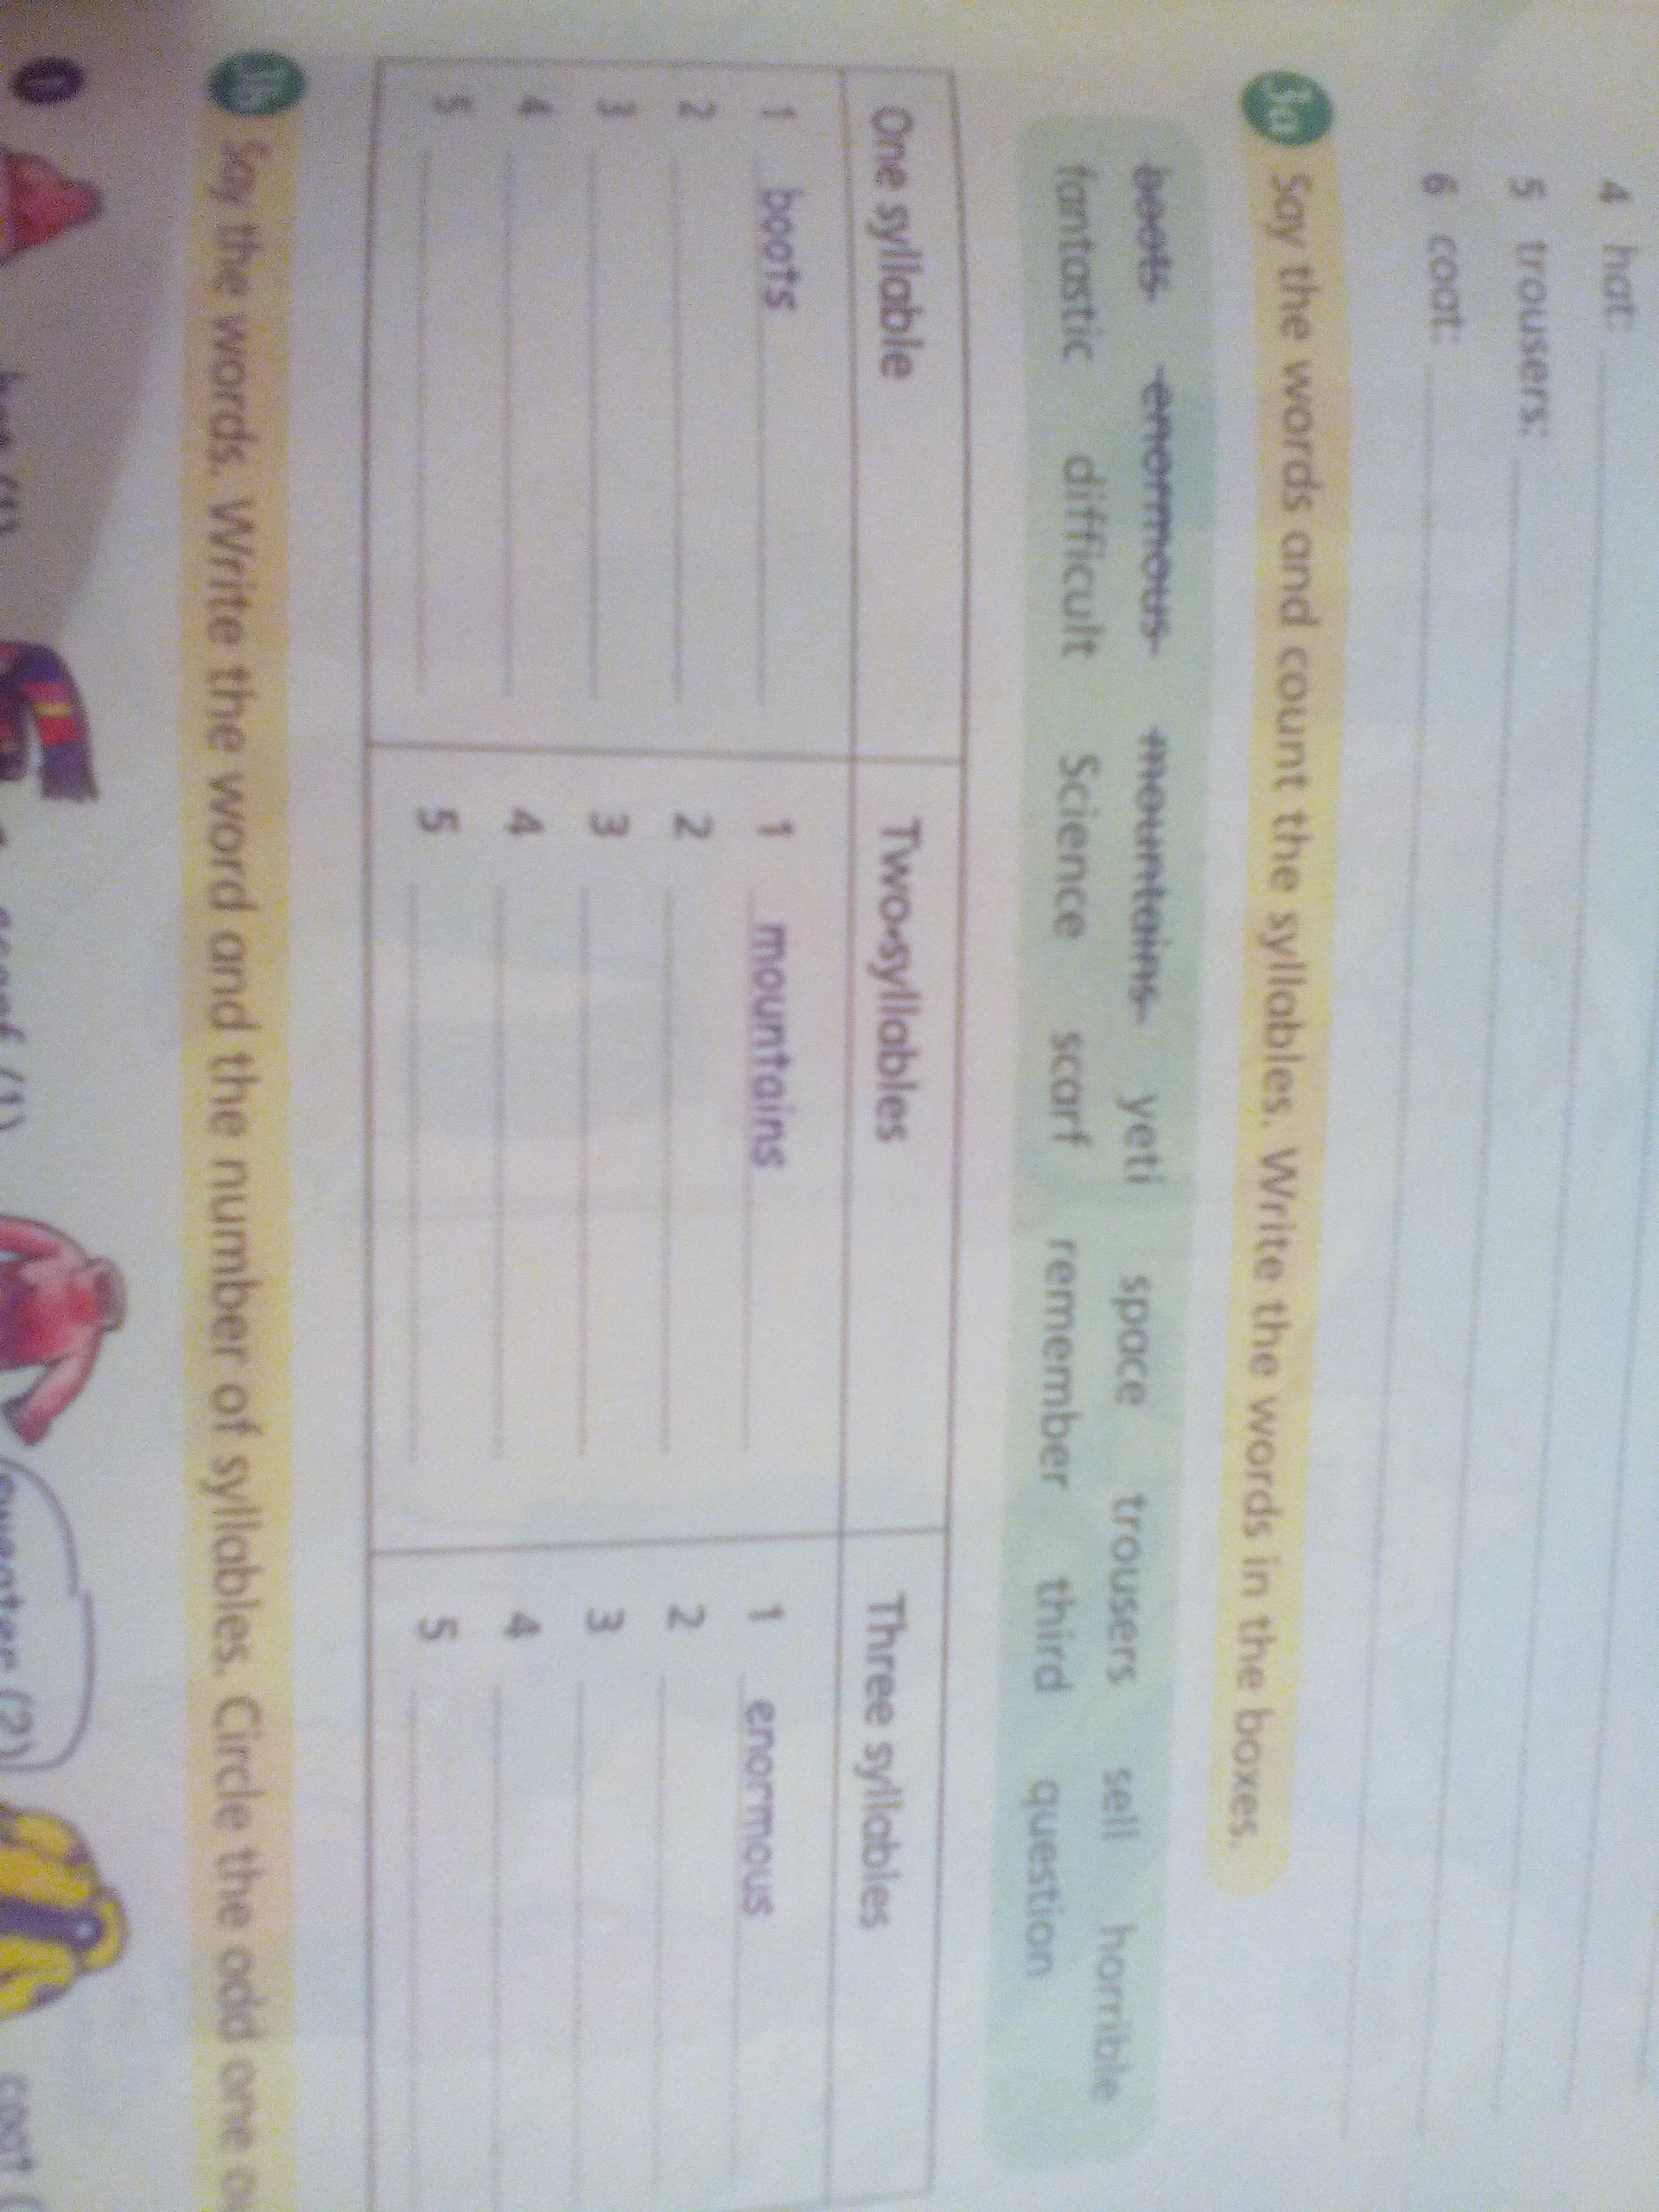 4 hat:
5 trousers:
6 coat:
3a Say the words and count the syllables. Write the words in the boxes.
boots enormous mountains yeti space trousers sell horrible
fantastic difficult Science scarf remember third question
One syllable Two syllables Three syllables
1 boots 1 mountains 1 enormous
2 2 2
3 3 3
4 4 4
5 5 5
3b Say the words. Write the word and the number of syllables. Circle the odd one
1 hat (1) scarf (1) sweater (2) coat